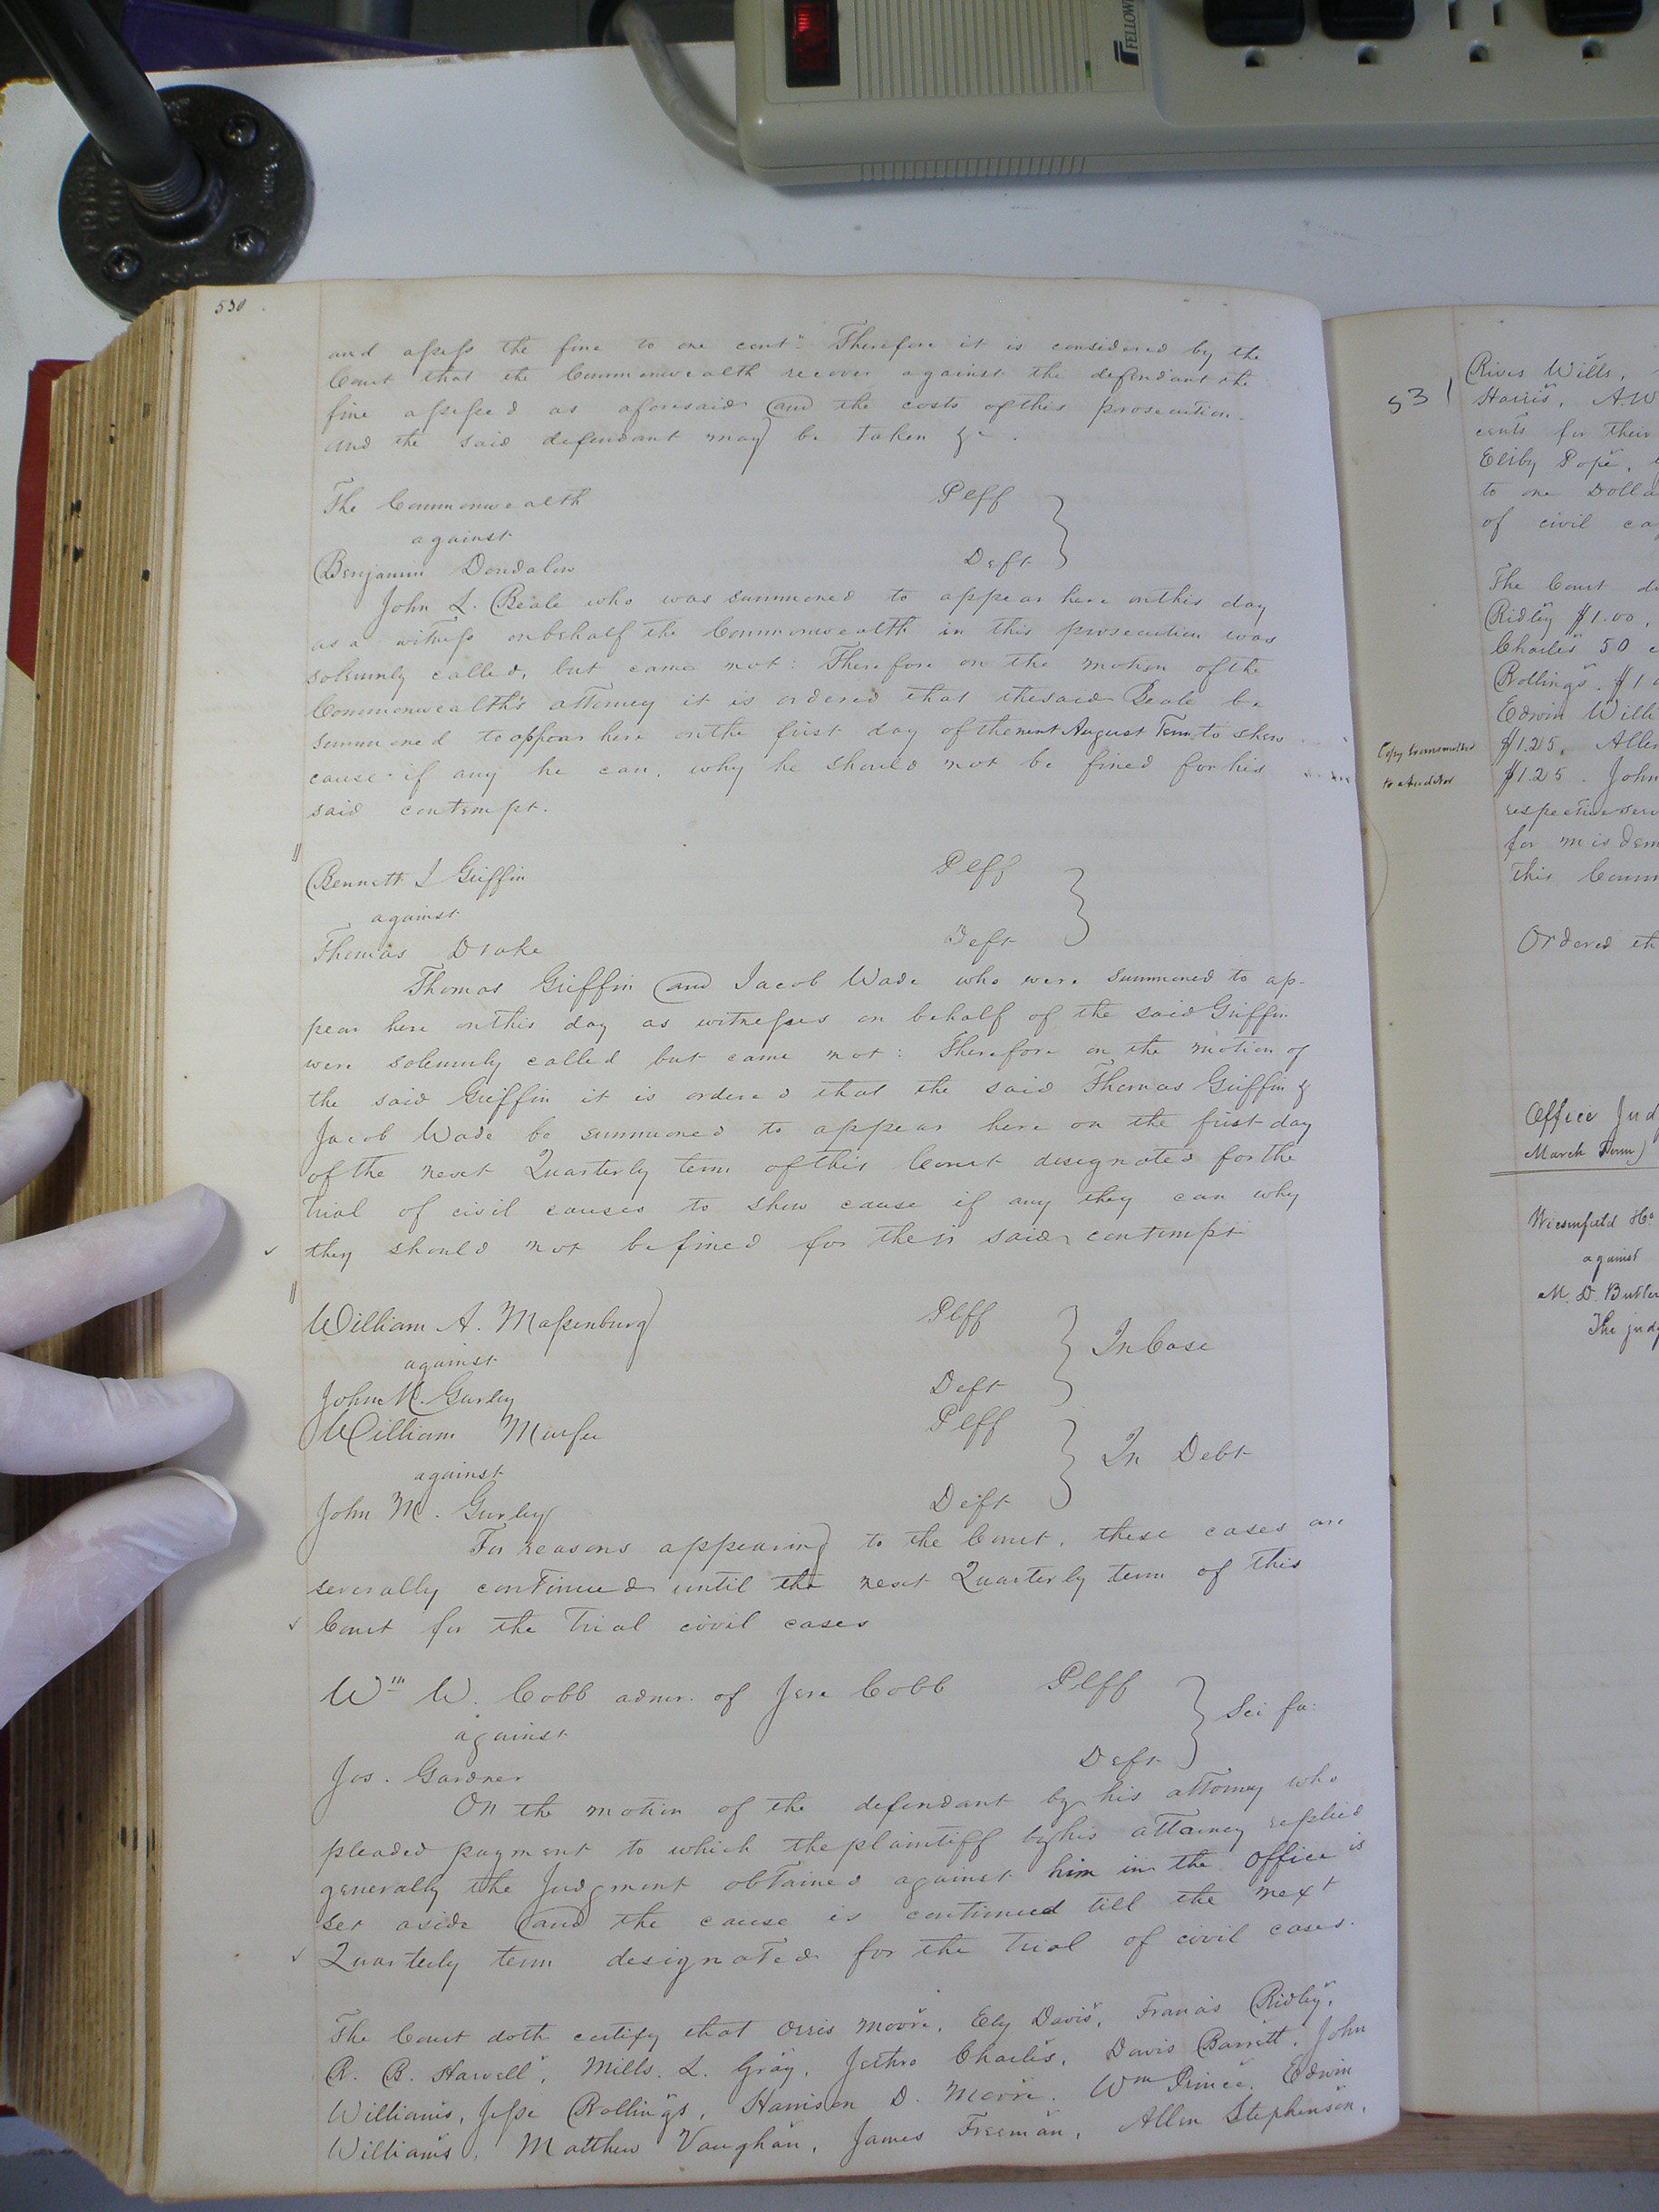 FELLOW
530
and assess the fine to one cent" Therefore it is considered by the
Court that the Commonwealth recover against the defendant the
fine assessed as aforesaid and the costs of this prosecution.
and the said defendant may be taken &c.
The Commonwealth Plff
against
Benjamin Dondalow Deft
John L. Beale who was summoned to appear here on this day
as a witness on behalf the Commonwealth in this prosecution was
solemnly called, but came not: Therefore on the motion of the
Commonwealth's attorney it is ordered that the said Beale be
summoned to appear here on the first day of the next August Term to shew
cause if any he can, why he should not be fined for his
said contempt.
Bennett I Griffin Plff
against
Thomas Drake Deft
Thomas Griffin and Jacob Wade who were summoned to ap-
pear here on this day as witnesses on behalf of the said Griffin
were solemnly called but came not: Therefore on the motion of
the said Griffin it is ordered that the said Thomas Griffin &
Jacob Wade be summoned to appear here on the first day
of the next Quarterly term of this Court designated for the
trial of civil causes to shew cause if any they can why
they should not be fined for their said contempt
William A. Massenburg Plff
against In Case
John M. Gurley Deft
William Murfee Plff
against In Debt
John M. Gurley Deft
For reasons appearing to the Court, these cases are
severally continued until the next Quarterly term of this
Court for the trial civil cases
Wm W. Cobb admr. of Jere Cobb Plff
against Sci fa:
Jos. Gardner Deft
On the motion of the defendant by his attorney who
pleaded payment to which the plaintiff by his attorney replied
generally the Judgment obtained against him in the office is
set aside and the cause is continued till the next
Quarterly term designated for the trial of civil cases.
The Court doth certify that Orris Moore, Ely Davis, Francis Ridley,
R. B. Harvell, Mills. L. Gray, Jethro Charles, Davis Barrett, John
Williams, Jesse Rollings, Harrison D. Moore, Wm Prince, Edwin
Williams, Matthew Vaughan, James Freeman, Allen Stephenson,
531
Rives Wills,
Harris, A.W
cents for their
Eliby Pope,
to one Dolla
of civil ca
The Court do
Ridley $1.00,
Charles 50 c
Rollings. $1
Edwin Willi
Copy transmitted
to Auditor
$1.25, Allen
$1.25. John
respective serv
for misdem
this Comm
Ordered th
Office Jud
March Term)
Wiesenfield &Co
against
M. D. Butler
The judg